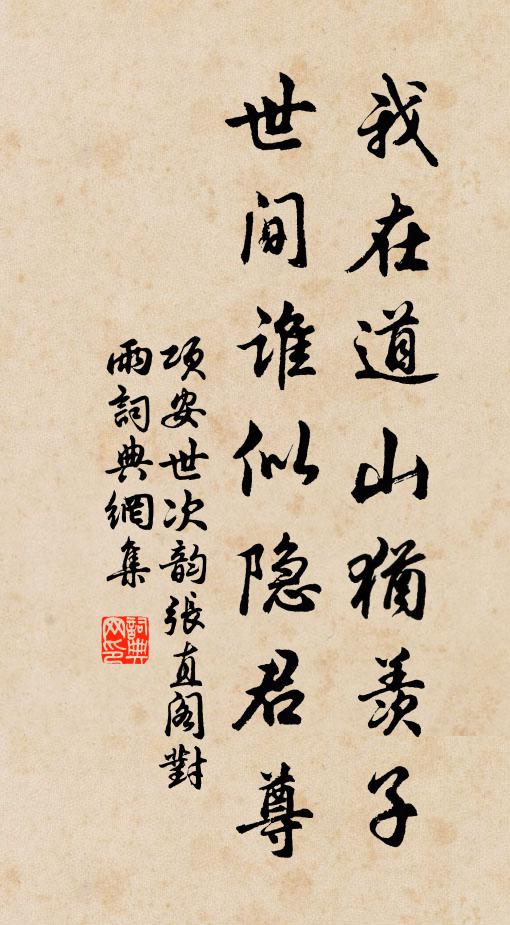 我在道山犹羨子
世间谁似隐君尊
项安世次韵張直阁對
雨詞典網集
詞典网印